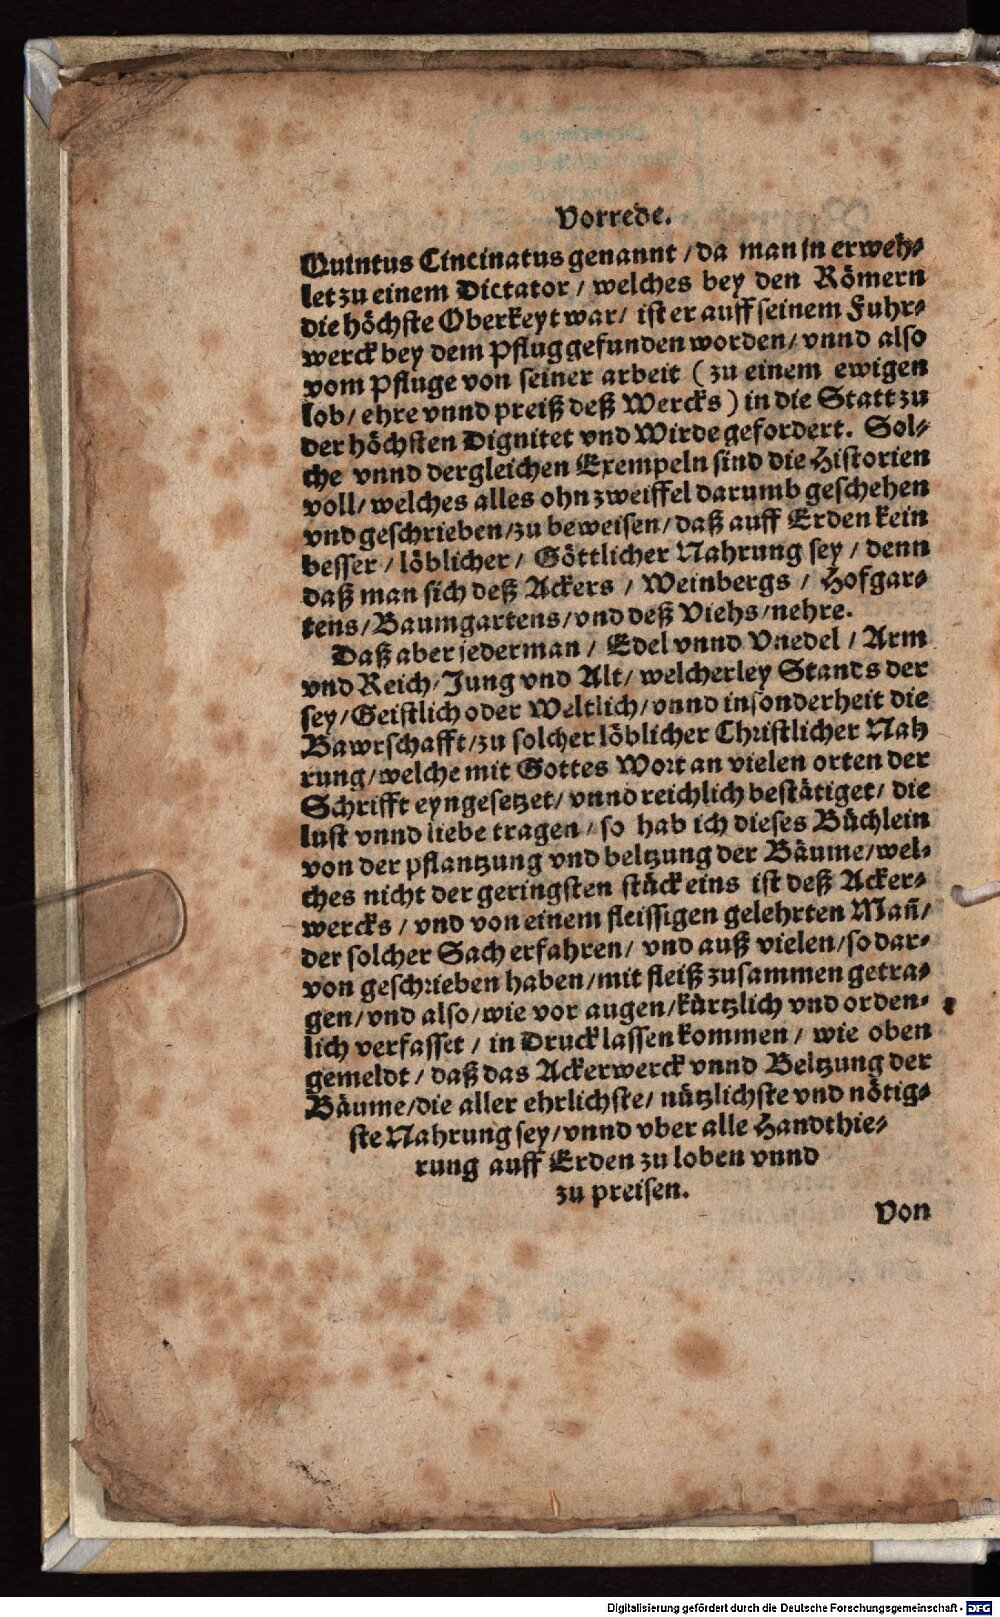 Vorrede.
Quintus Cincinatus genannt / da man in erweh-
let zu einem Dictator / welches bey den Römern
die höchste Oberkeyt war / ist er auff seinem Fuhr-
werck bey dem Pflug gefunden worden / vnnd also
vom Pfluge von seiner arbeit ( zu einem ewigen
lob / ehre vnnd preiß deß Wercks ) in die Statt zu
der höchsten Dignitet vnd Wirde gefordert. Sol-
che vnnd dergleichen Exempeln sind die Historien
voll / welches alles ohn zweiffel darumb geschehen
vnd geschrieben / zu beweisen / daß auff Erden kein
besser / löblicher / Göttlicher Nahrung sey / denn
daß man sich deß Ackers / Weinbergs / Hofgar-
tens / Baumgartens / vnd deß Viehs / nehre.
Daß aber jederman / Edel vnnd Vnedel / Arm
vnd Reich / Jung vnd Alt / welcherley Stands der
sey / Geistlich oder Weltlich / vnnd insonderheit die
Bawrschafft / zu solcher löblicher Christlicher Nah
rung / welche mit Gottes Wort an vielen orten der
Schrifft eyngesetzet / vnnd reichlich bestätiget / die
lust vnnd liebe tragen / so hab ich dieses Büchlein
von der pflantzung vnd beltzung der Bäume / wel-
ches nicht der geringsten stück eins ist deß Acker-
wercks / vnd von einem fleissigen gelehrten Mañ /
der solcher Sach erfahren / vnd auß vielen / so dar-
von geschrieben haben / mit fleiß zusammen getra-
gen / vnd also / wie vor augen / kürtzlich vnd orden-
lich verfasset / in Druck lassen kommen / wie oben
gemeldt / daß das Ackerwerck vnnd Beltzung der
Bäume / die aller ehrlichste / nützlichste vnd nötig-
ste Nahrung sey / vnnd vber alle Handthie-
rung auff Erden zu loben vnnd
zu preisen.
Von
Digitalisierung gefördert durch die Deutsche Forschungsgemeinschaft - DFG